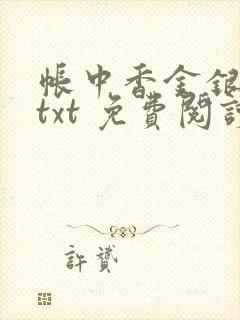 帳中香金銀
txt 免費閱讀
許贊